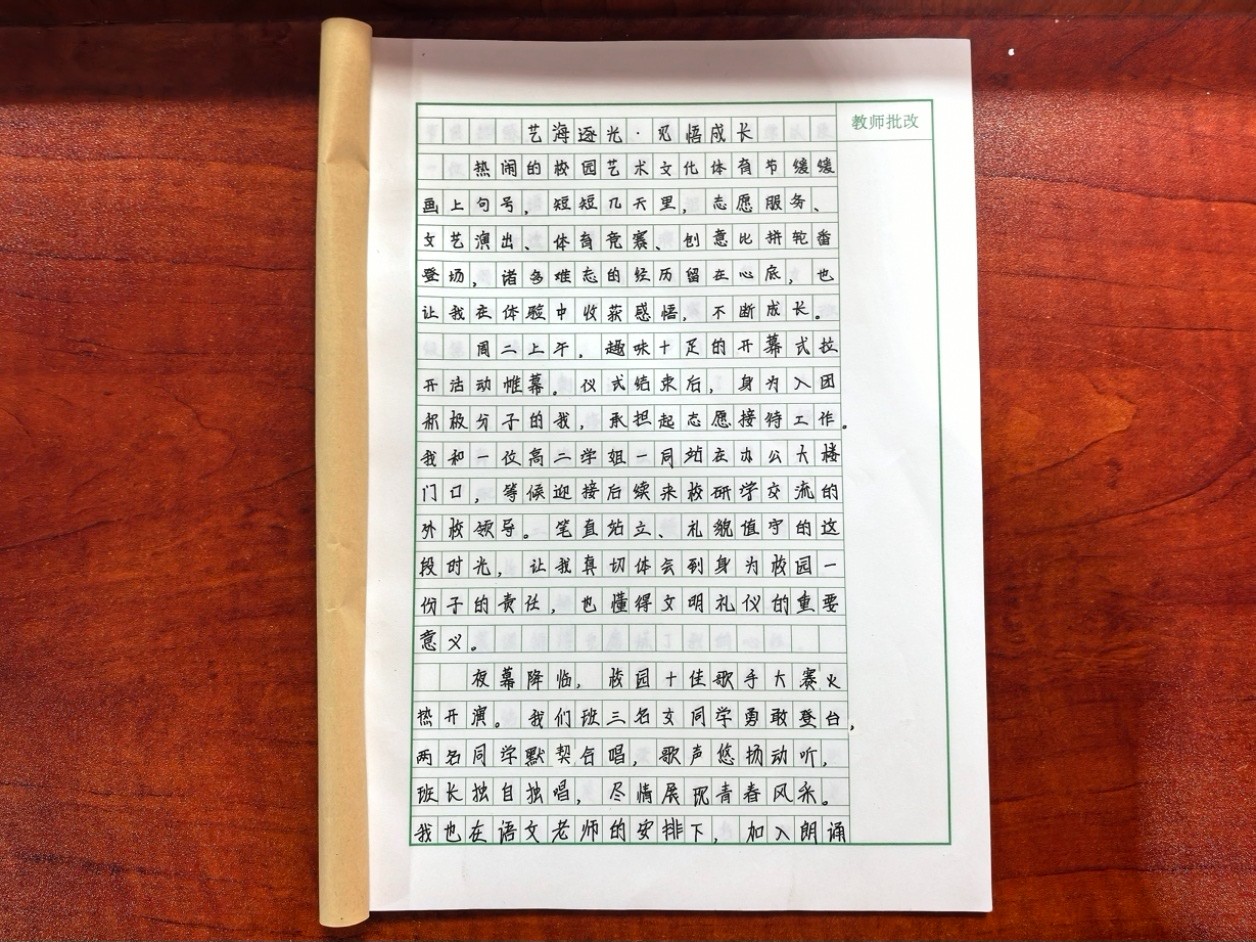 艺海逐光·见悟成长
教师批改
热闹的校园艺术文化体育节缓缓
画上句号，短短几天里，志愿服务、
文艺演出、体育竞赛、创意比拼轮番
登场，诸多难忘的经历留在心底，也
让我在体验中收获感悟，不断成长。
周二上午，趣味十足的开幕式拉
开活动帷幕。仪式结束后，身为入团
积极分子的我，承担起志愿接待工作。
我和一位高二学姐一同站在办公大楼
门口，等候迎接后续来校研学交流的
外校领导。笔直站立、礼貌值守的这
段时光，让我真切体会到身为校园一
份子的责任，也懂得文明礼仪的重要
意义。
夜幕降临，校园十佳歌手大赛火
热开演。我们班三名女同学勇敢登台，
两名同学默契合唱，歌声悠扬动听，
班长独自独唱，尽情展现青春风采。
我也在语文老师的安排下，加入朗诵